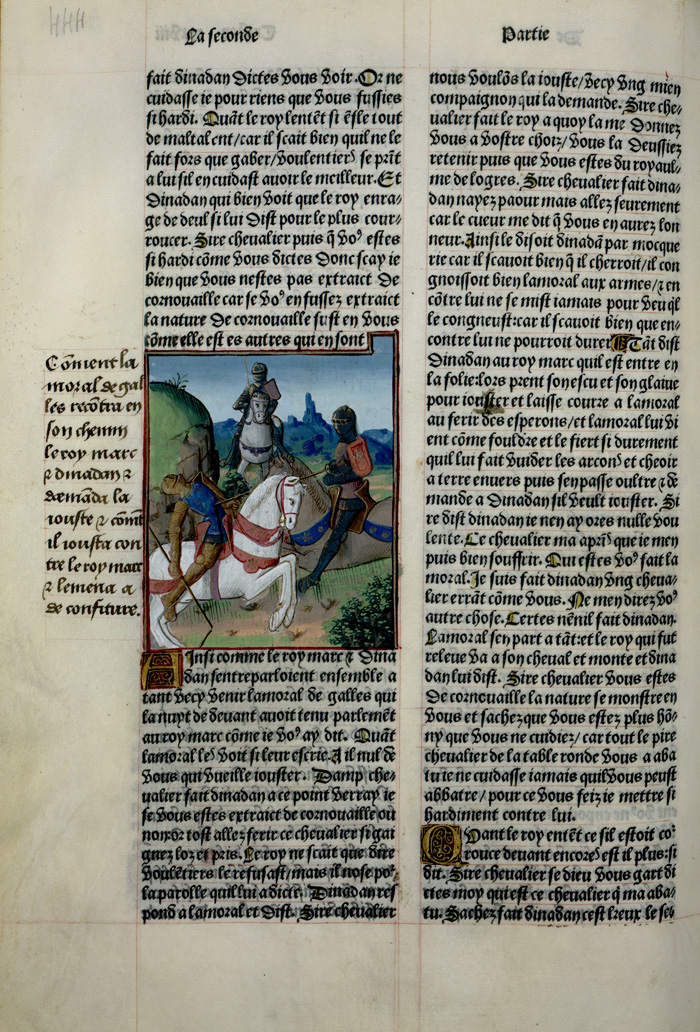 La seconde
Partie
fait dinadan Dictes Vous Voir. Or ne
cuidasse ie pour riens que Vous fussies
si hardi. Quāt le roy lentēt si ēsle tout
de maltalent/car il scait bien quil ne le
fait fors que gaber/Voulentiers se prēt
a lui sil en cuidast auoir le meilleur. Et
Dinadan qui bien Voit que le roy enra⸗
ge de deul si lui Dist pour le plus cour⸗
roucer. Sire cheualier puis q̄ Voꝰ estes
si hardi cōme Vous dictes Donc scay ie
bien que Vous nestes pas extraict De
cornouaille car se Voꝰ en fussez extraict
la nature de cornouaille fust en Vous
cōme elle est es autres qui en sont
Cōment la
moral de gal
les recōtra en
son chemin
le roy marc
⁊ dinadan ⁊
demāda la
iouste ⁊ cōmt
il iousta con
tre le roy marc
⁊ lemena a
de confiture.
Ainsi comme le roy marc ⁊ Dina
dan sentreparloient ensemble a
tant Vecy Venir lamoral de galles qui
la nuyt de deuant auoit tenu parlemēt
au roy marc cōme ie Voꝰ ay dit. Quāt
lamoral les Voit si leur escrie. A il nul de
Vous qui Vueille iouster. Damp che⸗
ualier fait dinadan a ce point Verray ie
se Vous estes extraict de cornouaille ou
non/or tost allez ferir ce cheualier si gai
gnez loz et pris. Le roy ne scait que dire
Voulētiers le refusast/mais il nose poꝰ
la parolle quil lui a dicte. Dinadan res
pond a lamoral et Dist. Sire cheualier
nous Voulōs la iouste/Vecy Vng mien
compaignon qui la demande. Sire che⸗
ualier fait le roy a quoy la me Donnez
Vous a Vostre choiz/Vous la Deussiez
retenir puis que Vous estes du royaul⸗
me de logres. Sire cheualier fait dina⸗
dan nayez paour mais allez seurement
car le cueur me dit q̄ Vous en aurez lon
neur. Ainsi le disoit dinadā par mocque
rie car il scauoit bien q̄ il cherroit/il con
gnoissoit bien lamoral aux armes/⁊ en
cōtre lui ne se mist iamais pour Veu q̄l
le congneust:car il scauoit bien que en⸗
contre lui ne pourroit durer Tāt dist
Dinadan au roy marc quil est entre en
la folie lors prent son escu et son glaiue
pour iouster et laisse courre a lamoral
au ferir des esperons/et lamoral lui Vi
ent cōme fouldre et le fiert si durement
quil lui fait Vuider les arcons et cheoir
a terre enuers puis sen passe oultre ⁊ de
mande a Dinadan sil Veult iouster. Si
re dist dinadan ie nen ay ores nulle Vou
lente. Ce cheualier ma apris que ie men
puis bien souffrir. Qui estes Voꝰ fait la
moral. Je suis fait dinadan Vng cheua⸗
lier errāt cōme Vous. Ne men direz Voꝰ
autre chose. Certes nēnil fait dinadan.
Lamoral sen part a tāt:et le roy qui fut
releue Va a son cheual et monte et dina
dan lui dist. Sire cheualier Vous estes
De cornouaille la nature se monstre en
Vous et sachez que Vous estez plus hō⸗
ny que Vous ne cuidiez/car tout le pire
cheualier de la table ronde Vous a aba
tu ie ne cuidasse iamais quil Vous peust
abbatre/pour ce Vous feiz ie mettre si
hardiment contre lui.
Quant le roy entēt ce sil estoit coꝰ
rouce deuant encores est il plus:si
dit. Sire cheualier se dieu Vous gart di
ctes moy qui est ce cheualier q̄ ma aba⸗
tu. Sachez fait dinadan cest lreux le sei⸗